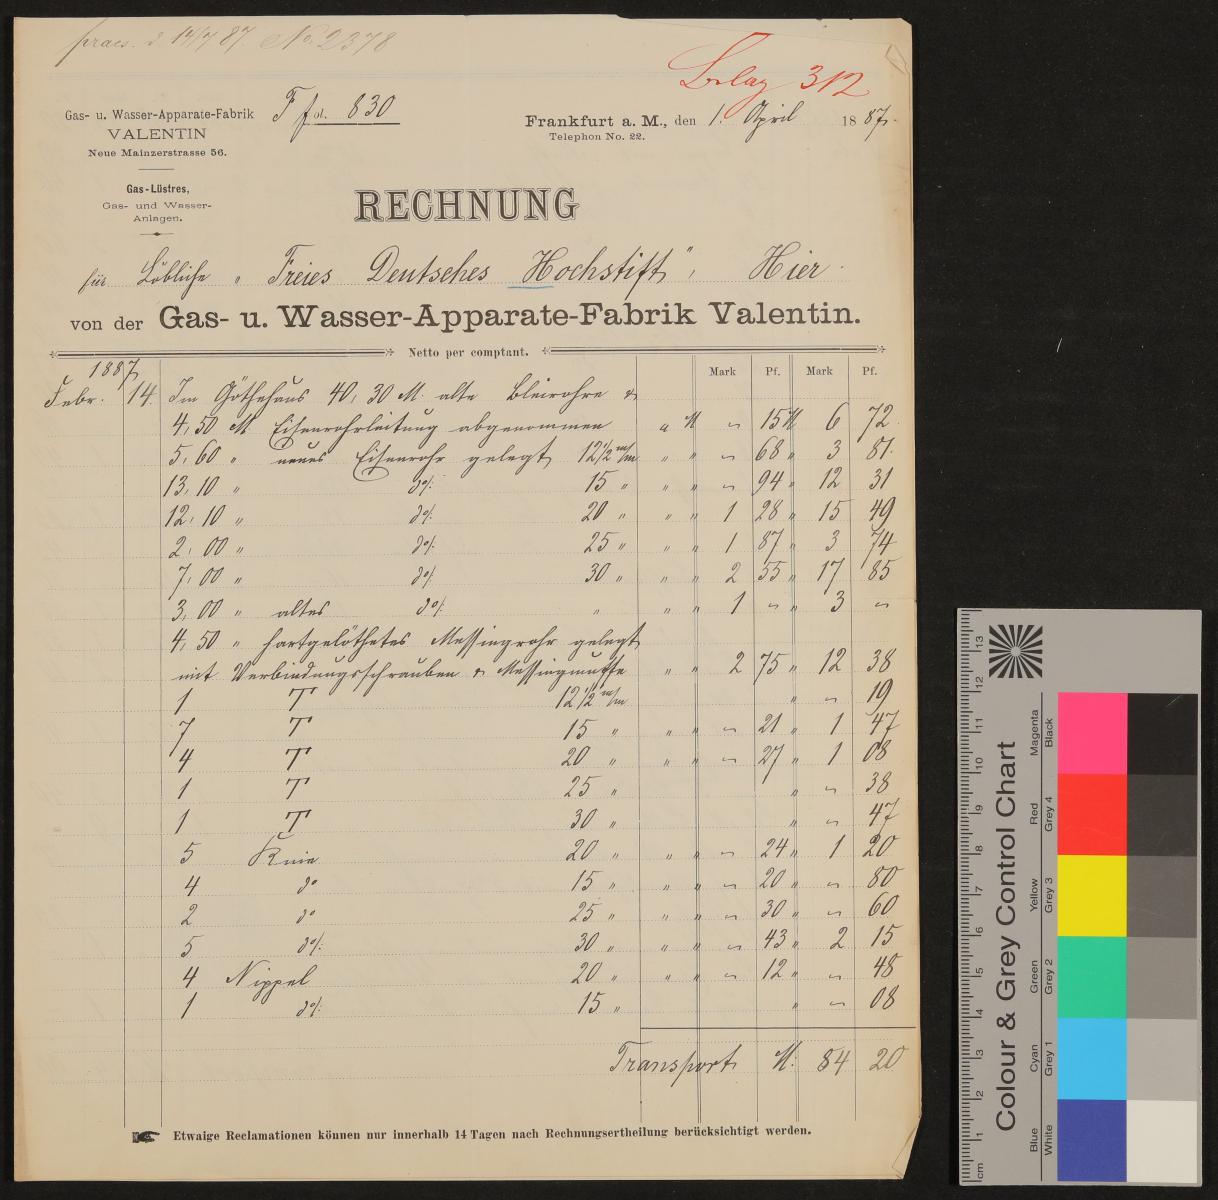 praes. d. 14/7 87. No. 2378
Belag 312
Gas- u. Wasser-Apparate-Fabrik
VALENTIN
Neue Mainzerstrasse 56.
Gas-Lüstres,
Gas- und Wasser-
Anlagen.
F fol. 830
Frankfurt a. M., den 1. April 1887.
Telephon No. 22.
RECHNUNG
für Löbliche "Freies Deutsches Hochstift", Hier.
von der Gas- u. Wasser-Apparate-Fabrik Valentin.
Netto per comptant.
Mark Pf. Mark Pf.
1887
Febr. 14. Im Göthehaus 40,30 M. alte Bleirohre &
4,50 M Eisenrohrleitung abgenommen a M – 15 M 6 72.
5,60 " neues Eisenrohr gelegt 12½ m/m " " – 68 " 3 81.
13,10 " do/. 15 " " " – 94 " 12 31
12,10 " do/. 20 " " " 1 28 " 15 49
2,00 " do/. 25 " " " 1 87 " 3 74
7,00 " do/. 30 " " " 2 55 " 17 85
3,00 " altes do/. " " " 1 – " 3 –
4,50 " hartgelöthetes Messingrohr gelegt
mit Verbindungsschrauben & Messingmuffe " " 2 75 " 12 38
1 T 12½ m/m " – 19
7 T 15 " " " – 21 " 1 47
4 T 20 " " " – 27 " 1 08
1 T 25 " " – 38
1 T 30 " " – 47
5 Knie 20 " " " – 24 " 1 20
4 do 15 " " " – 20 " – 80
2 do 25 " " " – 30 " – 60
5 do/. 30 " " " – 43 " 2 15
4 Nippel 20 " " " – 12 " – 48
1 do/. 15 " " – 08
Transport M. 84 20
Etwaige Reclamationen können nur innerhalb 14 Tagen nach Rechnungsertheilung berücksichtigt werden.
Colour & Grey Control Chart
Blue Cyan Green Yellow Red Magenta
White Grey 1 Grey 2 Grey 3 Grey 4 Black
cm 1 2 3 4 5 6 7 8 9 10 11 12 13